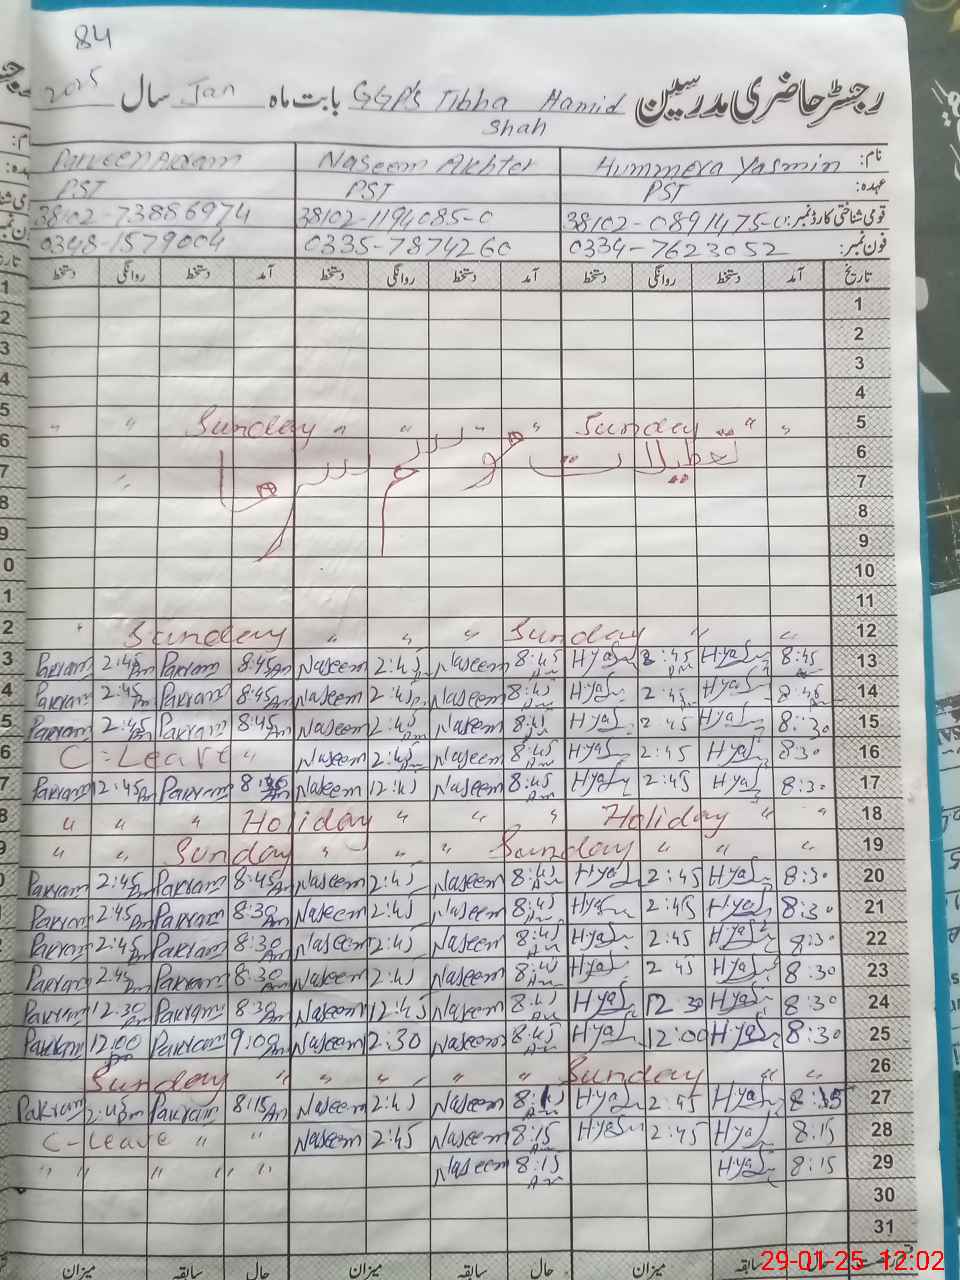 84
رجسٹر حاضری مدرسین GGPS Tibba Hamid Shah بابت ماہ Jan سال 2025
نام: Hummera Yasmin Naseem Akhter Parveen Akram
عہدہ: PST PST PST
قومی شناختی کارڈ نمبر: 38102-0891475-0 38102-1194085-0 38102-73886974
فون نمبر: 0334-7623052 0335-7874260 0348-1579004
تاریخ آمد دستخط روانگی دستخط آمد دستخط روانگی دستخط آمد دستخط روانگی دستخط
1
2
3
4
5 " " Sunday " " " Sunday " "
6 تعطیلات موسم سرما
7
8
9
10
11
12 Sunday " " " Sunday " "
13 Pakram 2:45 Pm Pakram 8:45 Am Naseem 2:45 Naseem 8:45 Hyas 2:45 Pm Hyas 8:45
14 Pakram 2:45 Pm Pakram 8:45 Am Naseem 2:45 Naseem 8:45 Am Hyas 2:45 Pm Hyas 8:45
15 Pakram 2:45 Pm Pakram 8:45 Am Naseem 2:45 Naseem 8:45 Am Hyas 2:45 Hyas 8:30
16 C-Leave " Naseem 2:45 Naseem 8:45 Am Hyas 2:45 Hyas 8:30
17 Pakram 12:45 Pm Pakram Naseem 12:45 Naseem 8:45 Am Hyas 2:45 Hyas 8:30
18 " " " Holiday " " " Holiday " "
19 " " Sunday " " " Sunday " " "
20 Pakram 2:45 Pm Pakram 8:45 Am Naseem 2:45 Naseem 8:45 Am Hyas 2:45 Hyas 8:30
21 Pakram 2:45 Pm Pakram 8:30 Am Naseem 2:45 Naseem 8:45 Am Hyas 2:45 Hyas 8:30
22 Pakram 2:45 Pm Pakram 8:30 Am Naseem 2:45 Naseem 8:45 Am Hyas 2:45 Hyas 8:30
23 Pakram 2:45 Pm Pakram 8:30 Am Naseem 2:45 Naseem 8:45 Am Hyas 2 45 Hyas 8:30
24 Pakram 12:30 Pm Pakram 8:30 Am Naseem 12:45 Naseem 8:45 Am Hyas 12 30 Hyas 8:30
25 Pakram 12:00 Pm Pakram 9:00 Am Naseem 2:30 Naseem 8:45 Am Hyas 12:00 Hyas 8:30
26 Sunday " " " " " Sunday " "
27 Pakram 2:45 Pm Pakram 8:15 Am Naseem 2:45 Naseem Hyas 2:45 Hyas
28 C-Leave " " Naseem 2:45 Naseem 8:15 Am Hyas 2:45 Hyas 8:15
29 " " " " " Naseem 8:15 Am Hyas 8:15
30
31
سابقہ میزان حال سابقہ میزان حال سابقہ میزان
29-01-25 12:02